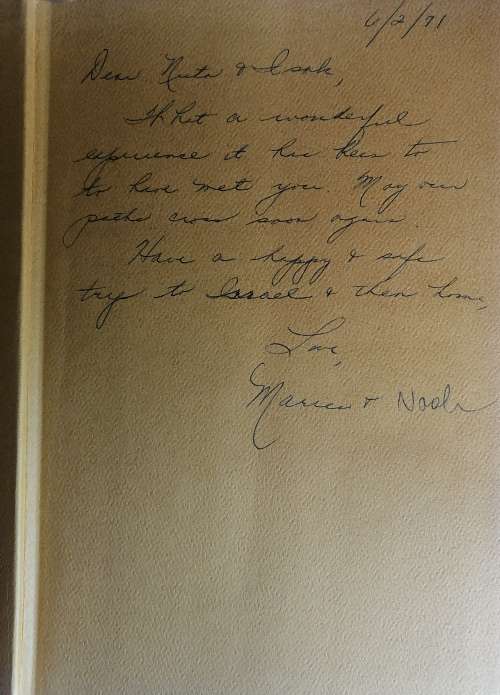 6/2/71
Dear Nuta & Isak,
What a wonderful
experience it has been to
to have met you. May our
paths cross soon again.
Have a happy & safe
trip to Israel & then home,
Love,
& Noah